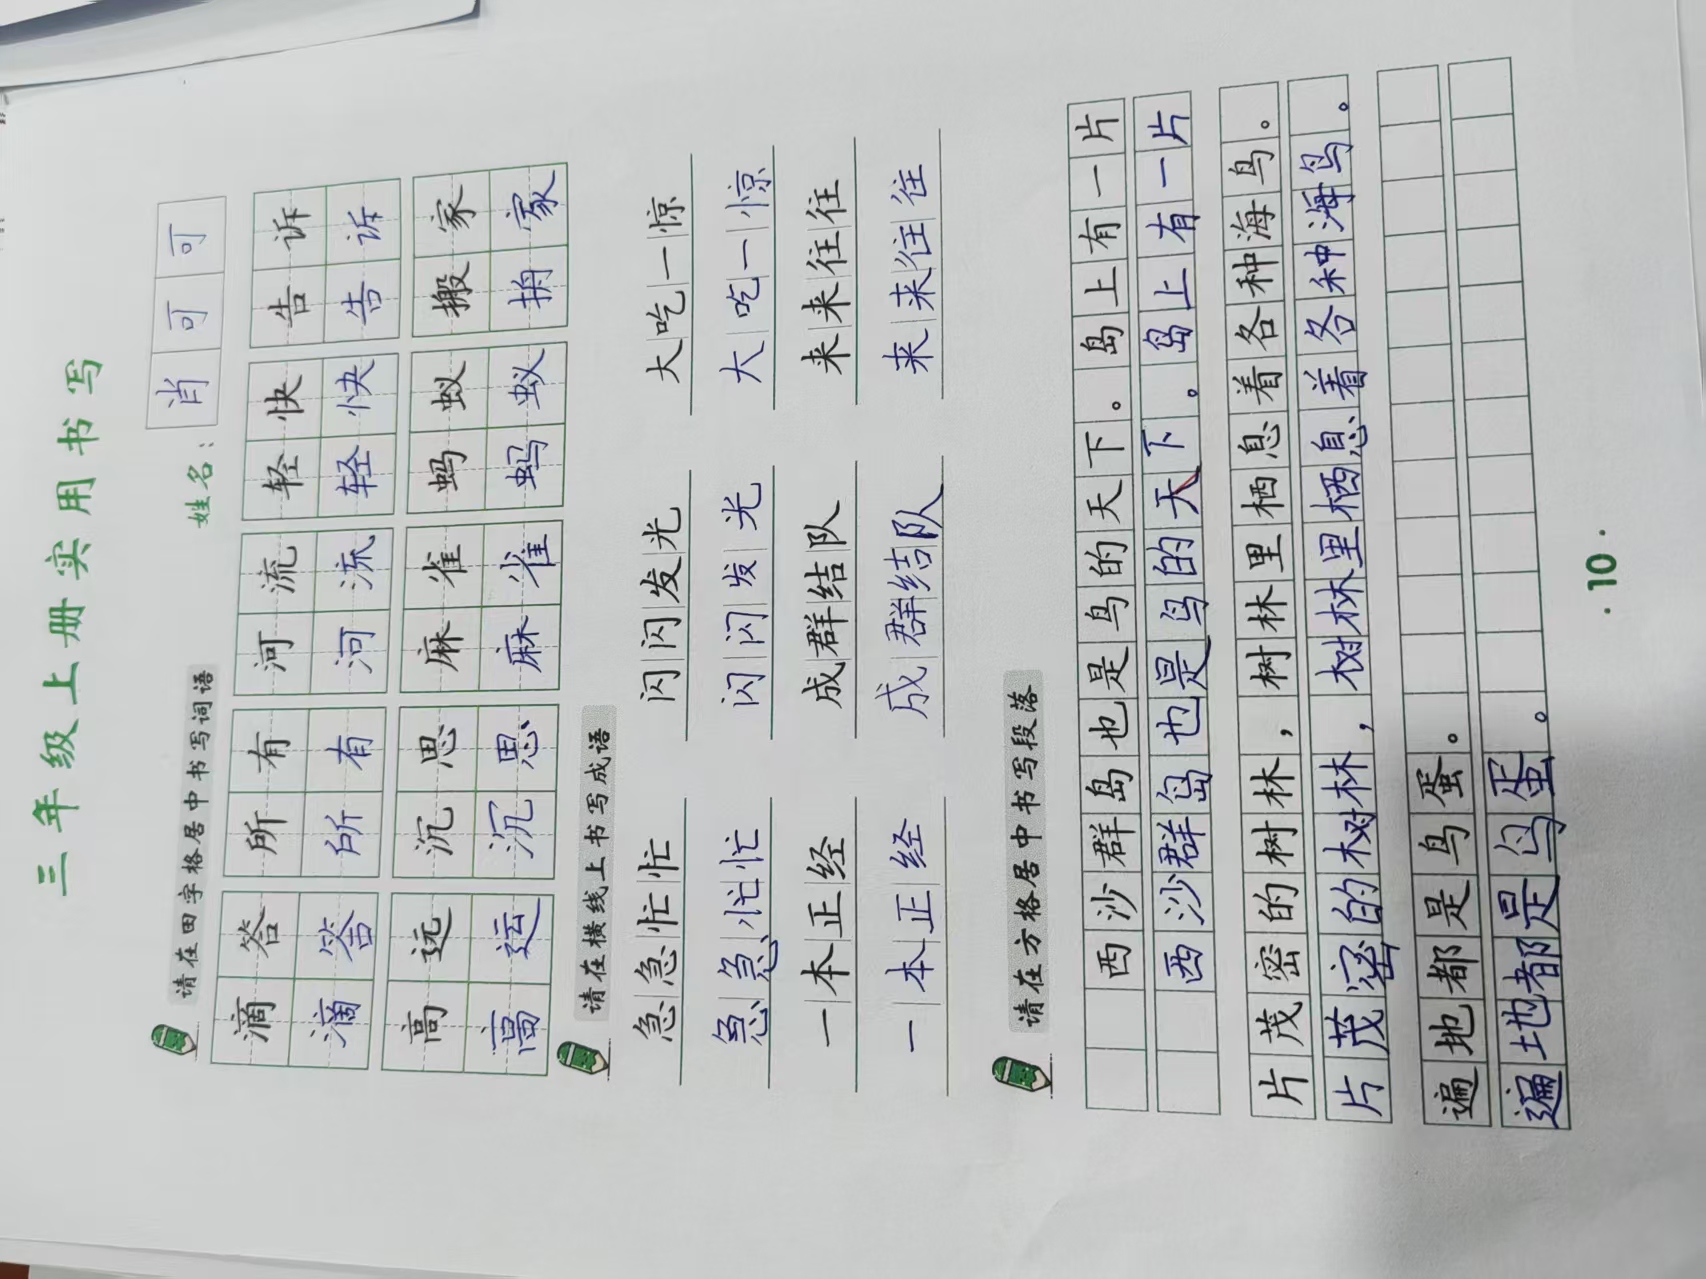 三年级上册实用书写
姓名：肖可可
请在田字格居中书写词语
滴答 所有 河流 轻快 告诉
滴答 所有 河流 轻快 告诉
高远 沉思 麻雀 蚂蚁 搬家
高远 沉思 麻雀 蚂蚁 家
请在横线上书写成语
急急忙忙 闪闪发光 大吃一惊
急急忙忙 闪闪发光 大吃一惊
一本正经 成群结队 来来往往
一本正经 成群结队 来来往往
请在方格居中书写段落
西沙群岛也是鸟的天下。岛上有一片
西沙群岛也是鸟的天下。岛上有一片
片茂密的树林，树林里栖息着各种海鸟。
片茂密的树林，树林里栖息着各种海鸟。
遍地都是鸟蛋。
遍地都是鸟蛋。
·10·